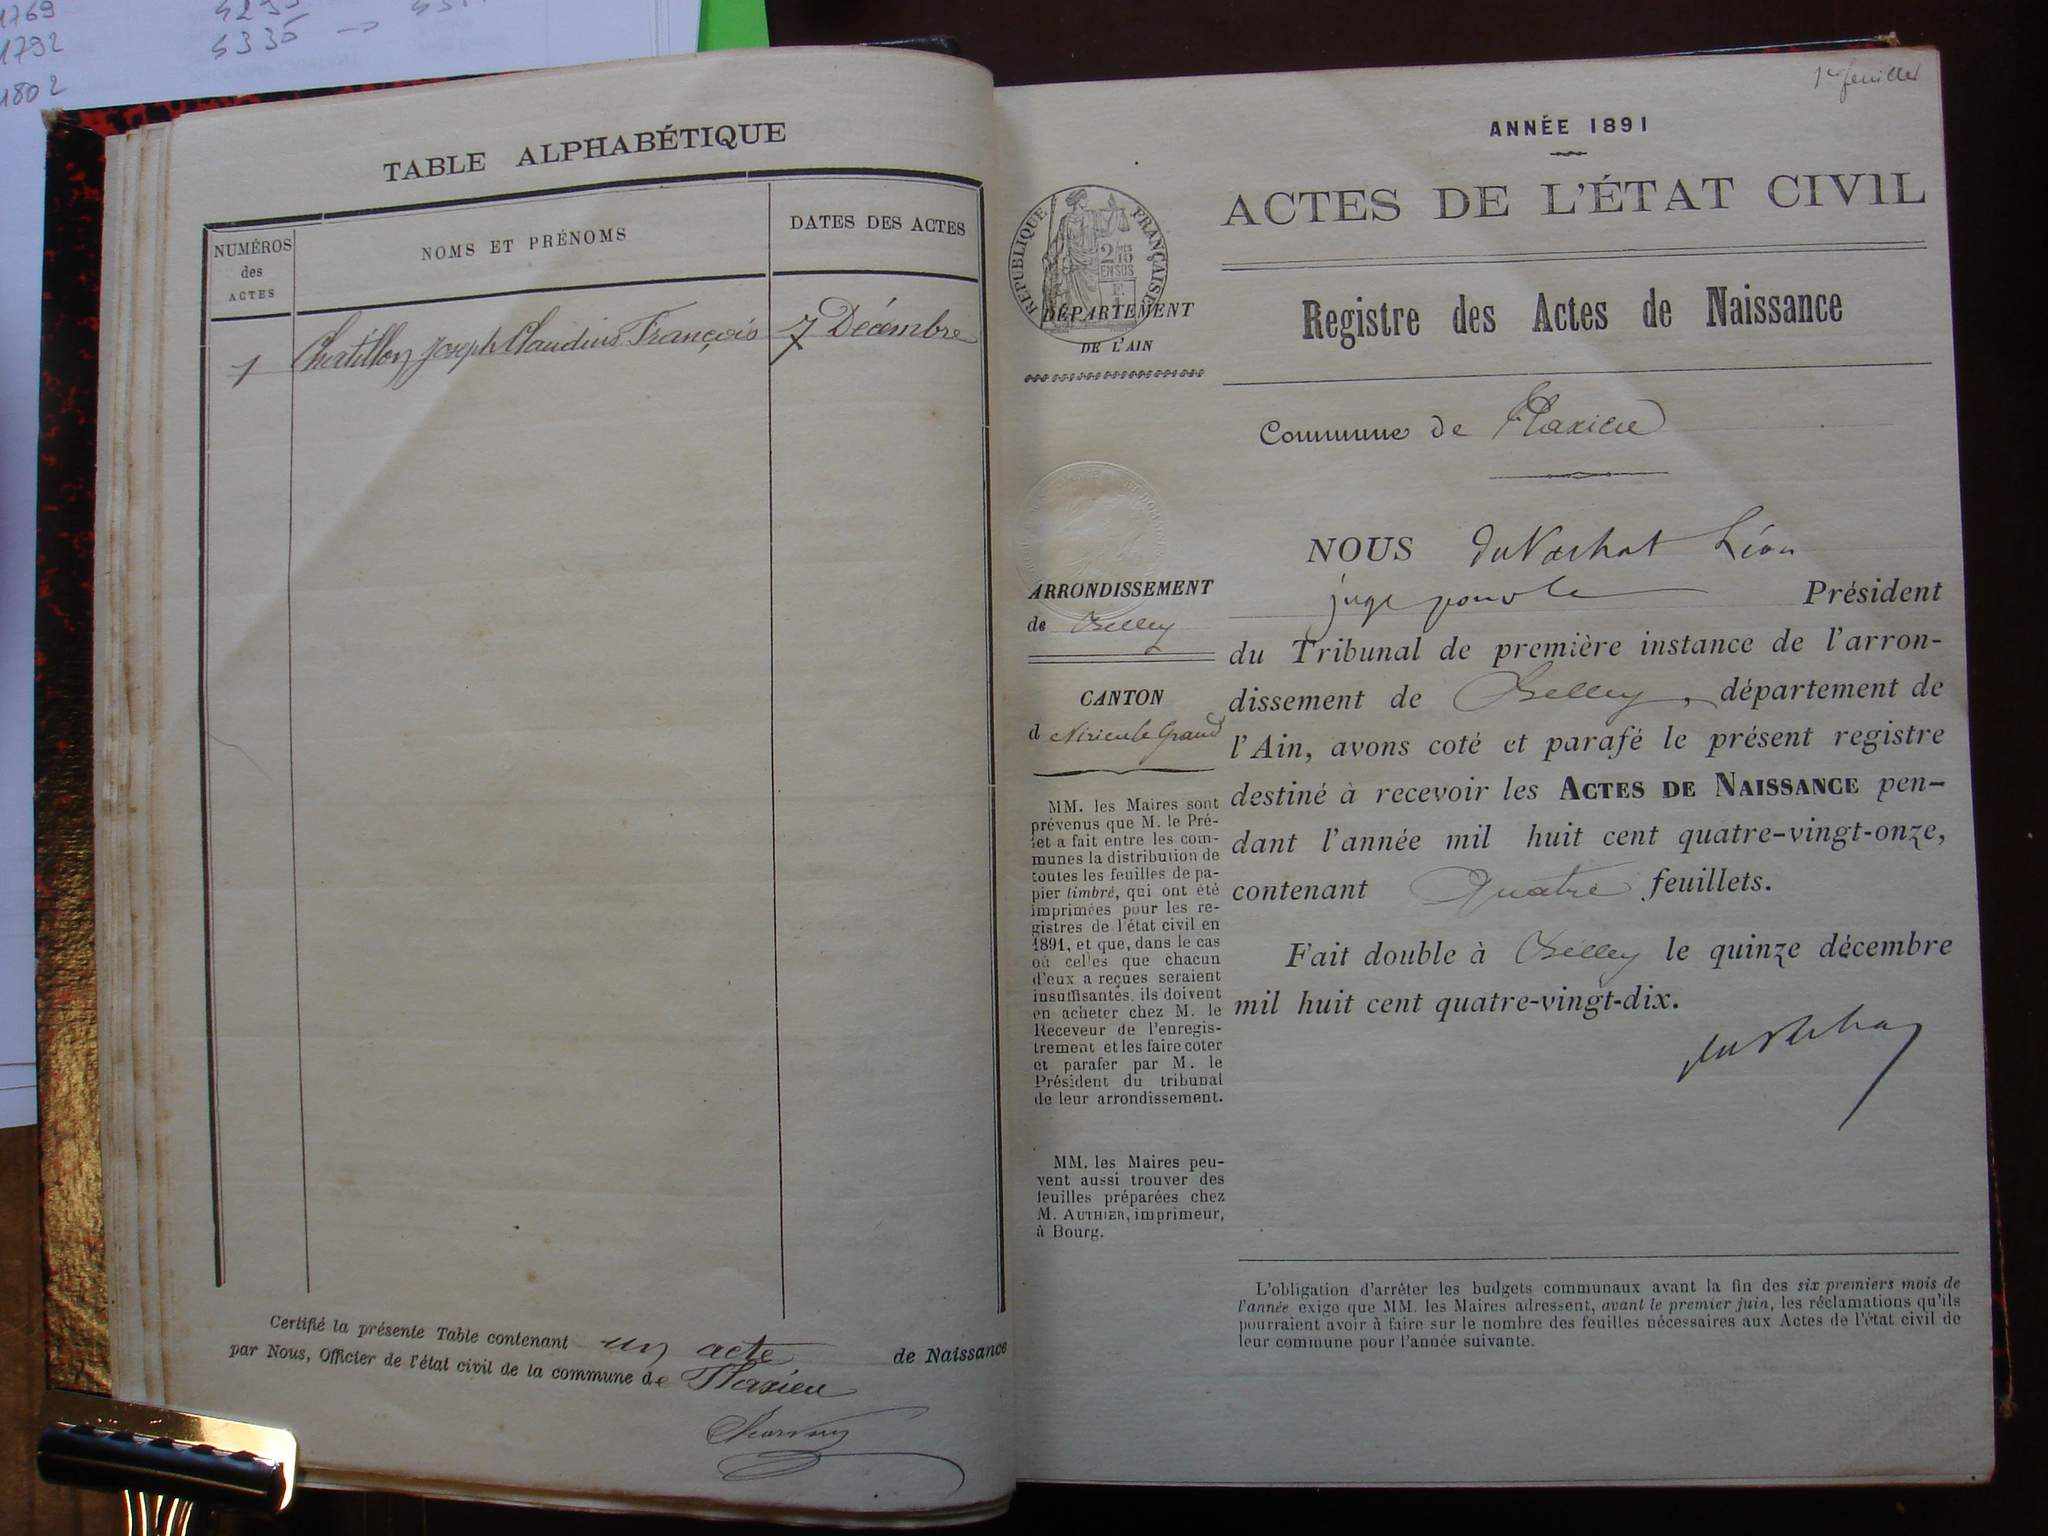 1769
1792
5335 →
1802
TABLE ALPHABÉTIQUE
NUMÉROS
des
ACTES
NOMS ET PRÉNOMS
DATES DES ACTES
1 Chatillon Joseph Claudius François 7 Décembre
Certifié la présente Table contenant un acte de Naissance
par Nous, Officier de l'état civil de la commune de Flaxieu
1er feuillet
ANNÉE 1891
ACTES DE L'ÉTAT CIVIL
RÉPUBLIQUE FRANÇAISE
DÉPARTEMENT
DE L'AIN
Registre des Actes de Naissance
Commune de Flaxieu
ARRONDISSEMENT
de Belley
CANTON
d Virieu le Grand
MM. les Maires sont
prévenus que M. le Pré-
fet a fait entre les com-
munes la distribution de
toutes les feuilles de pa-
pier timbré, qui ont été
imprimées pour les re-
gistres de l'état civil en
1891, et que, dans le cas
où celles que chacun
d'eux a reçues seraient
insuffisantes, ils doivent
en acheter chez M. le
Receveur de l'enregis-
trement et les faire coter
et parafer par M. le
Président du tribunal
de leur arrondissement.
MM. les Maires peu-
vent aussi trouver des
feuilles préparées chez
M. AUTHIER, imprimeur,
à Bourg.
NOUS du Vachat Léon
juge pour le Président
du Tribunal de première instance de l'arron-
dissement de Belley, département de
l'Ain, avons coté et parafé le présent registre
destiné à recevoir les ACTES DE NAISSANCE pen-
dant l'année mil huit cent quatre-vingt-onze,
contenant Quatre feuillets.
Fait double à Belley le quinze décembre
mil huit cent quatre-vingt-dix.
du Vachat
L'obligation d'arrêter les budgets communaux avant la fin des six premiers mois de
l'année exige que MM. les Maires adressent, avant le premier juin, les réclamations qu'ils
pourraient avoir à faire sur le nombre des feuilles nécessaires aux Actes de l'état civil de
leur commune pour l'année suivante.